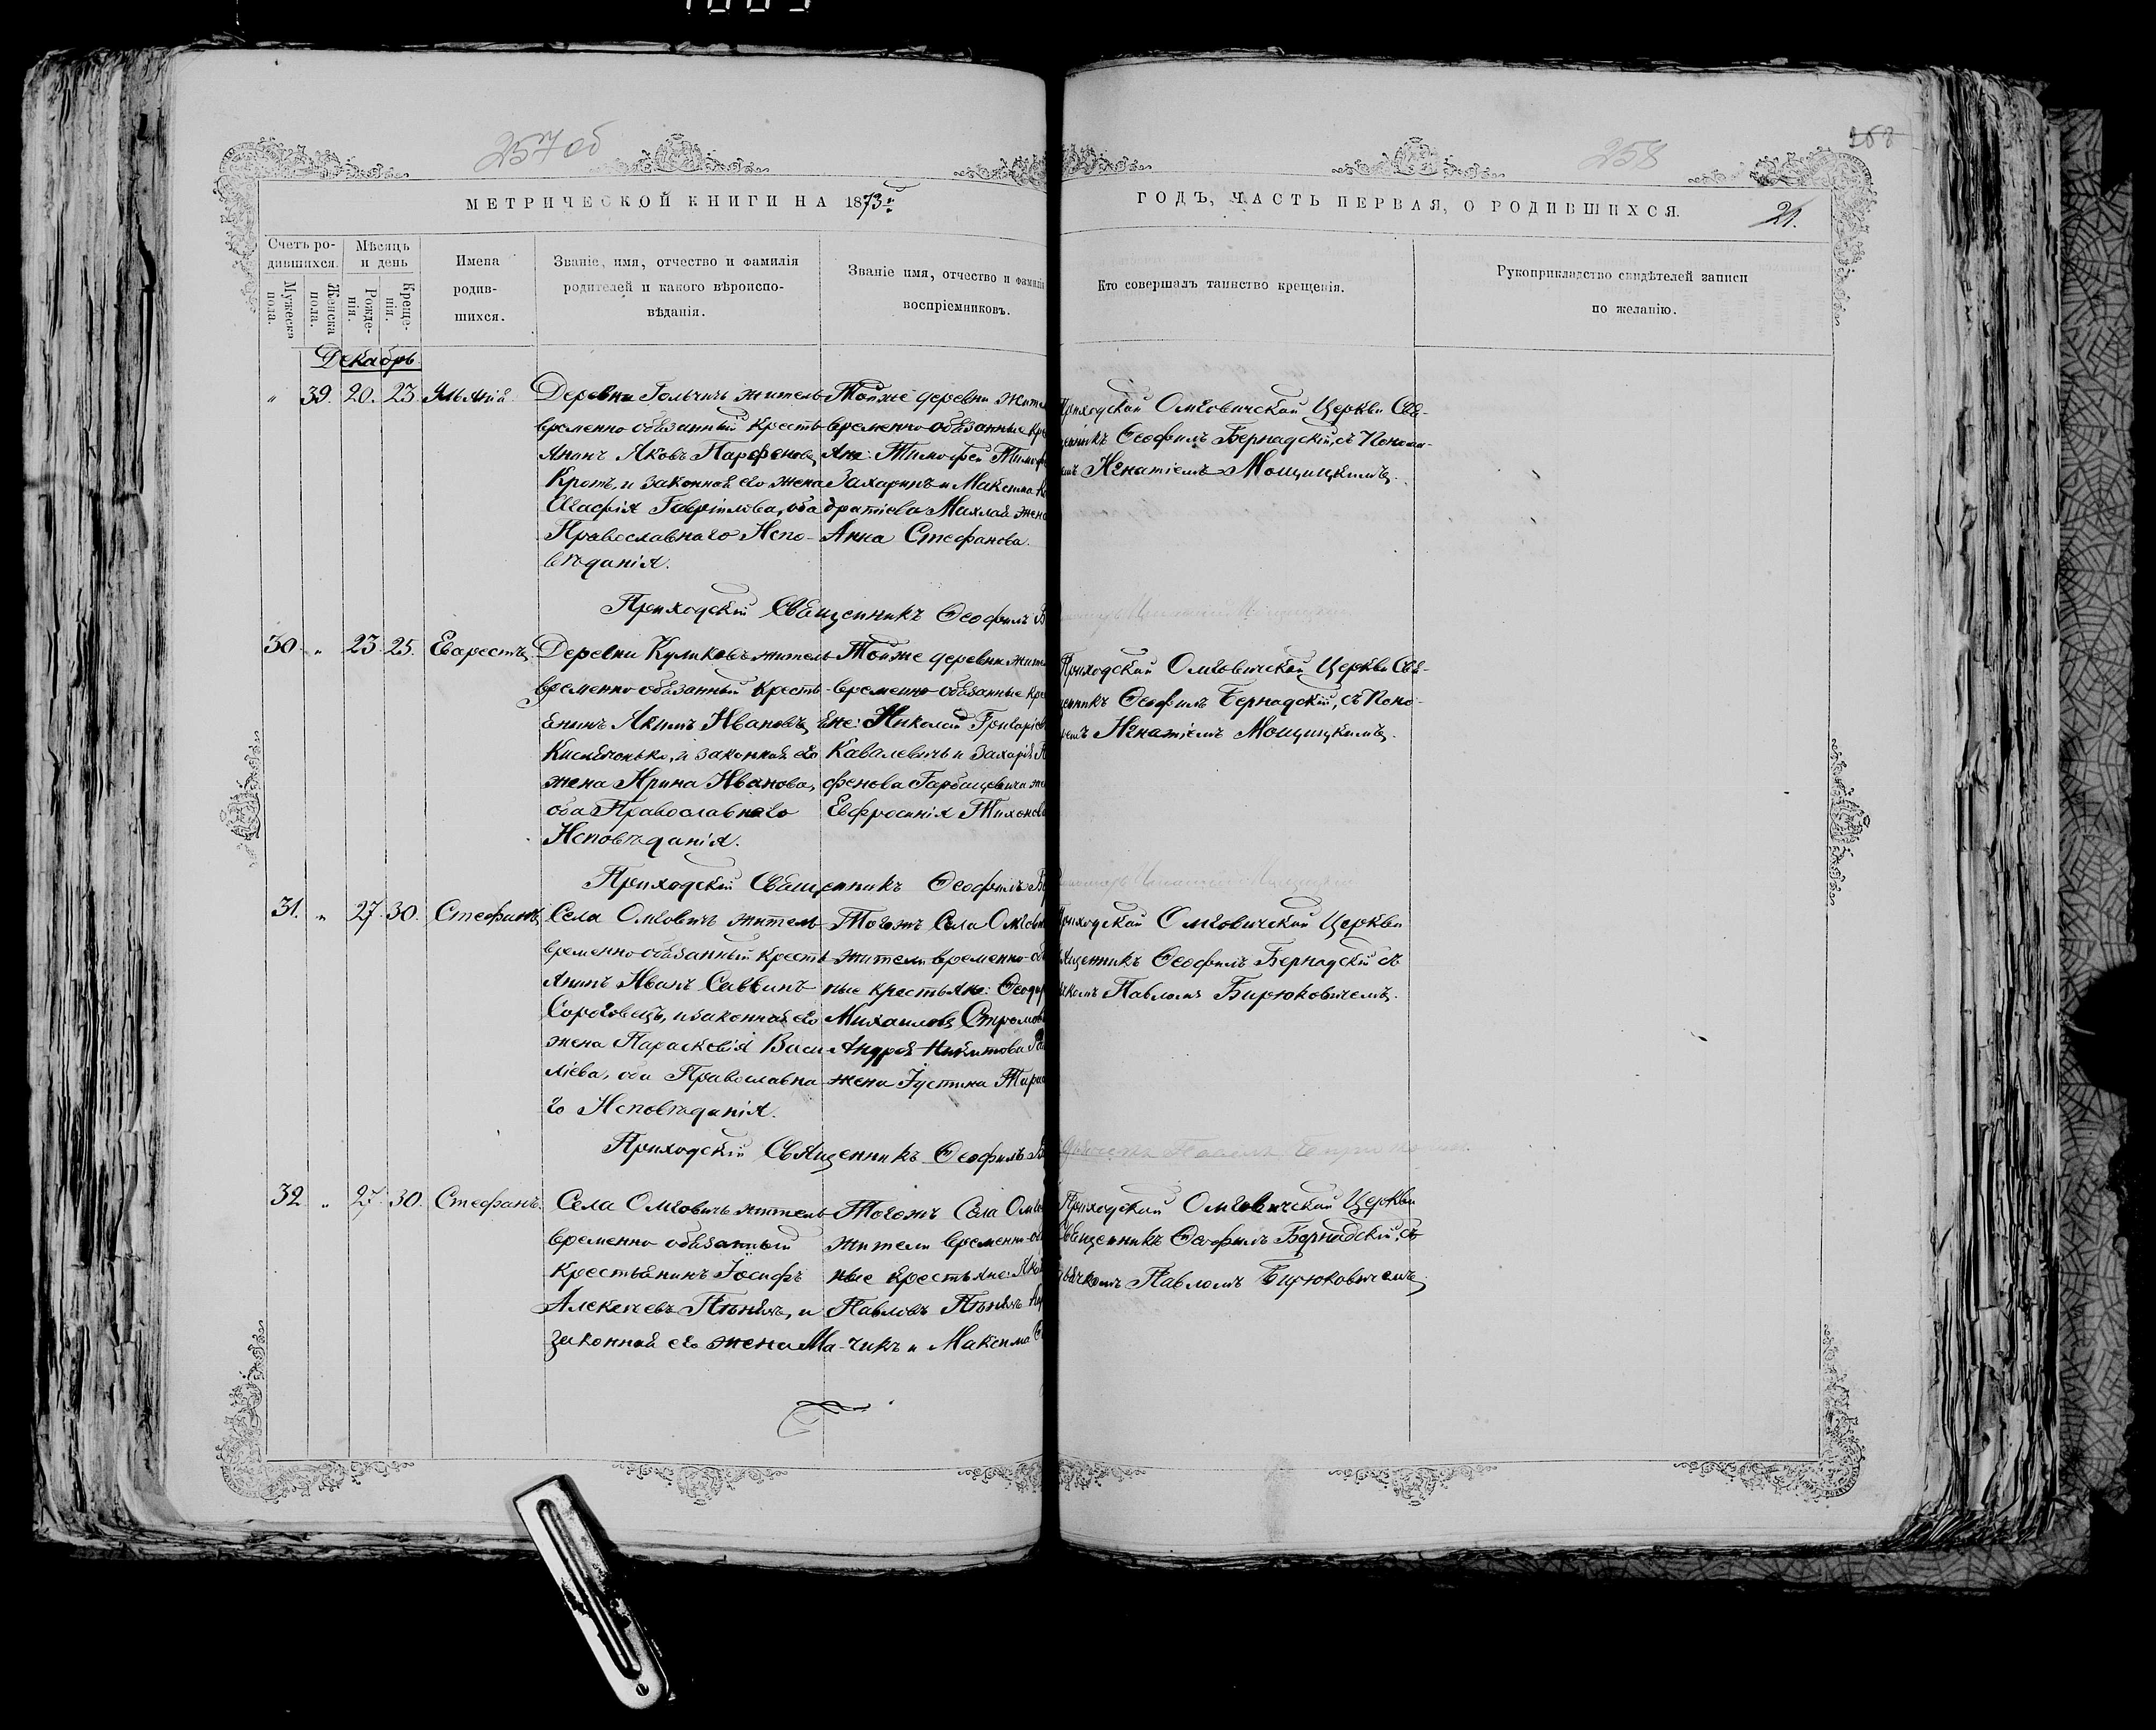 257 об
258
258
МЕТРИЧЕСКОЙ КНИГИ НА 1873й
ГОДЪ, ЧАСТЬ ПЕРВАЯ, О РОДИВШИХСЯ.
21.
Счетъ ро-
дившихся.
Мужеска пола.
Женска пола.
Мѣсяцъ
и день
Рожде-
нія.
Креще-
нія.
Имена
родив-
шихся.
Званіе, имя, отчество и фамилія
родителей и какого вѣроиспо-
вѣданія.
Званіе имя, отчество и фамилія
воспріемниковъ.
Кто совершалъ таинство крещенія.
Рукоприкладство свидѣтелей записи
по желанію.
Декабрь
" 39. 20. 23. Юлянія
Деревни Гольчичъ житель
временно обязанный кресть-
янинъ Яковъ Парфеновъ
Кротъ, и законная его жена
Агафія Гавріилова, оба
Православнаго Испо-
вѣданія.
Тойже деревни жите
временно-обязанные кре
яне: Тимофей Тимоф
Захаринъ и Максима
жена
Анна Стефанова.
Приходской Омговичской Церкви Свя-
щенникъ Ѳеофилъ Бернадскій, съ Понома-
ремъ Игнатіемъ Мощицкимъ.
Приходскій Священникъ Ѳеофилъ
30 " 23. 25. Еварестъ
Деревни Куликовъ житель
временно обязанный кресть-
янинъ Акимъ Ивановъ
и законная его
жена Ирина Иванова,
оба Православнаго
Исповѣданія.
Тойже деревни жите
временно-обязанные кре
яне: Николай Григоріев
Кавалевичъ и Захарія
фенова Гарбацевича же
Евфросинія Тихонова
Приходской Омговичской Церкви Свя-
щенникъ Ѳеофилъ Бернадскій, съ Поно-
ремъ Игнатіемъ Мощицкимъ.
Приходскій Священникъ Ѳеофилъ
31. " 27. 30. Стефанъ
Села Омговичъ житель
временно-обязанный кресть-
янинъ Иванъ Саввинъ
Сороговецъ, и законная его
жена Параскевія Васи-
ліева, оба Православна-
го Исповѣданія.
Тогожъ Села Омгови
жители временно-об
ные крестьяне: Ѳеодор
Михаиловъ
Андрея Никитова
жена Іустина
Приходской Омговичской Церкви
Священникъ Ѳеофилъ Бернадскій съ
Дьячкомъ Павломъ Бирюковичемъ.
Приходскій Священникъ Ѳеофилъ
32 " 27. 30. Стефанъ.
Села Омговичъ житель
временно обязанный
крестьянинъ Іосифъ
Алексѣевъ и
законная его жена Ма-
Тогожъ Села Омго
жители временно-об
ные крестьяне:
Павловъ
чикъ и Максима
Приходской Омговичской Церкви
Священникъ Ѳеофилъ Бернадскій, съ
Дьячкомъ Павломъ Бирюковичемъ